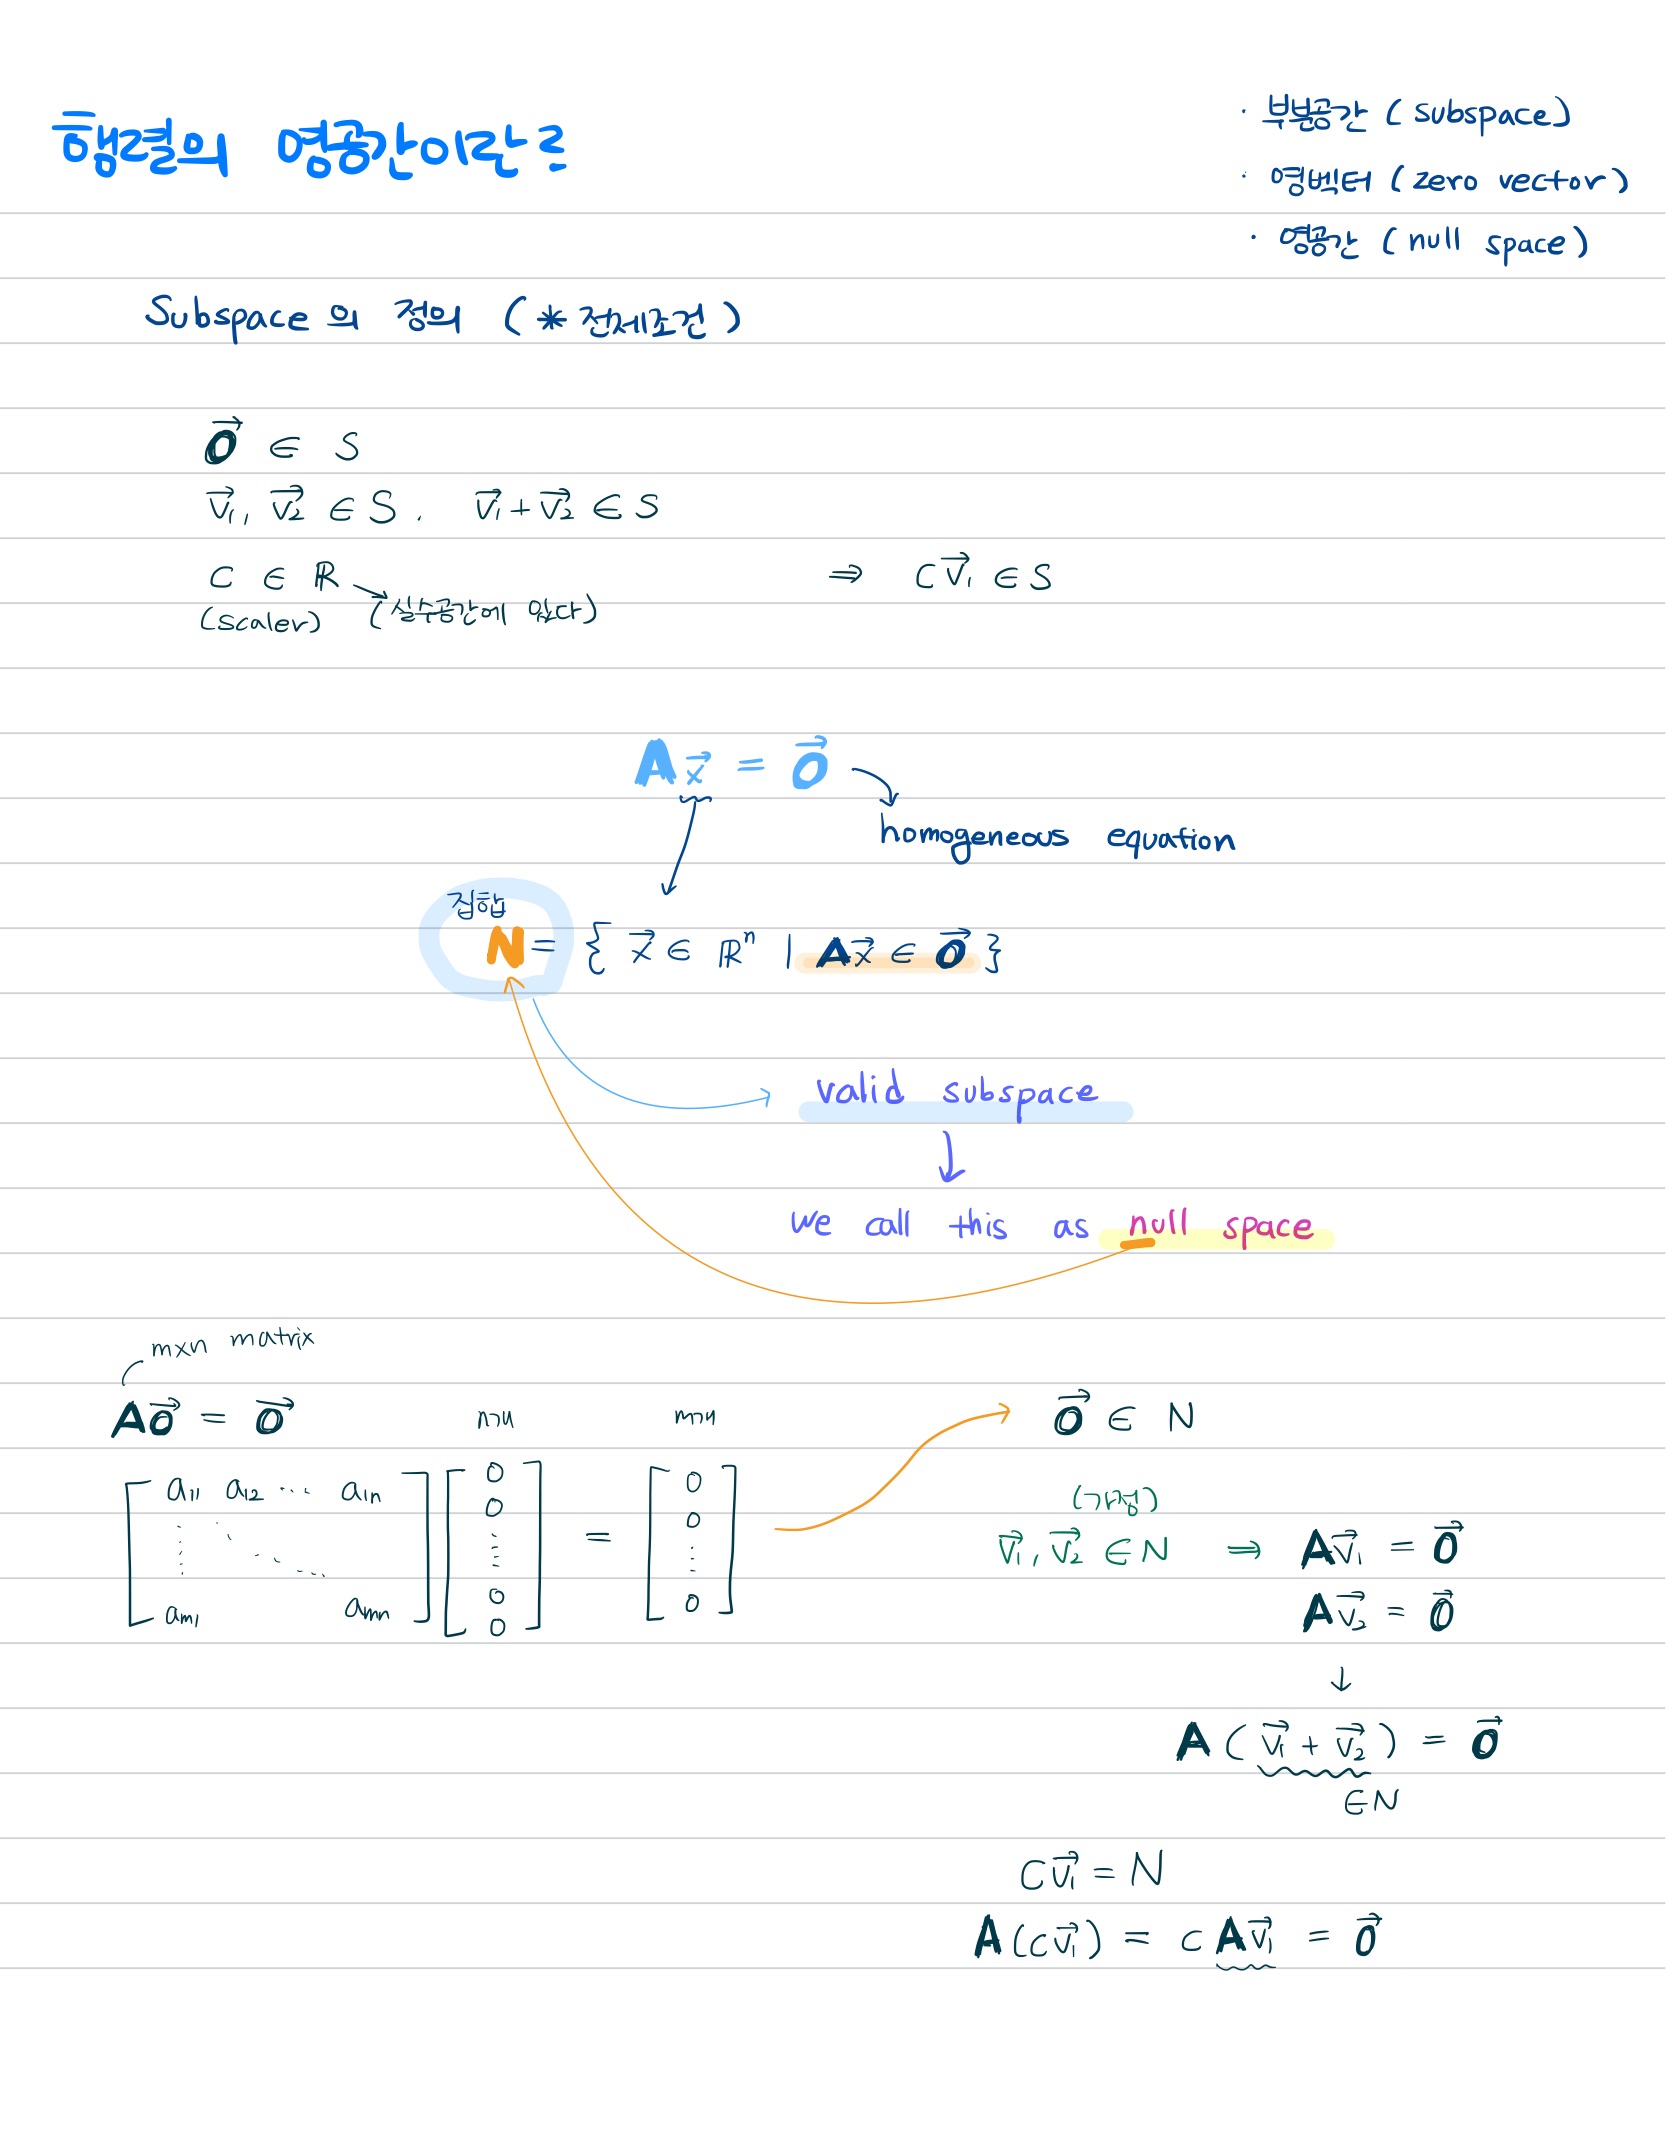 행렬의 영공간이란?
· 부분공간 ( subspace )
· 영벡터 ( zero vector )
· 영공간 ( null space )
Subspace의 정의 ( * 전제조건 )
0⃗ ∈ S
v⃗₁, v⃗₂ ∈ S . v⃗₁ + v⃗₂ ∈ S
C ∈ ℝ ⇒ C v⃗₁ ∈ S
(scaler) (실수공간에 있다)
A x⃗ = 0⃗
homogeneous equation
집합
N = { x⃗ ∈ ℝⁿ | A x⃗ ∈ 0⃗ }
valid subspace
↓
we call this as null space
mxn matrix
A 0⃗ = 0⃗ n개 m개 0⃗ ∈ N
a₁₁ a₁₂ ⋯ a₁ₙ 0 0
0 0
⋮ ⋱ ⋮ = ⋮
aₘ₁ aₘₙ 0 0
0
(가정)
v⃗₁, v⃗₂ ∈ N ⇒ A v⃗₁ = 0⃗
A v⃗₂ = 0⃗
↓
A ( v⃗₁ + v⃗₂ ) = 0⃗
∈ N
C v⃗₁ = N
A ( C v⃗₁ ) = C A v⃗₁ = 0⃗